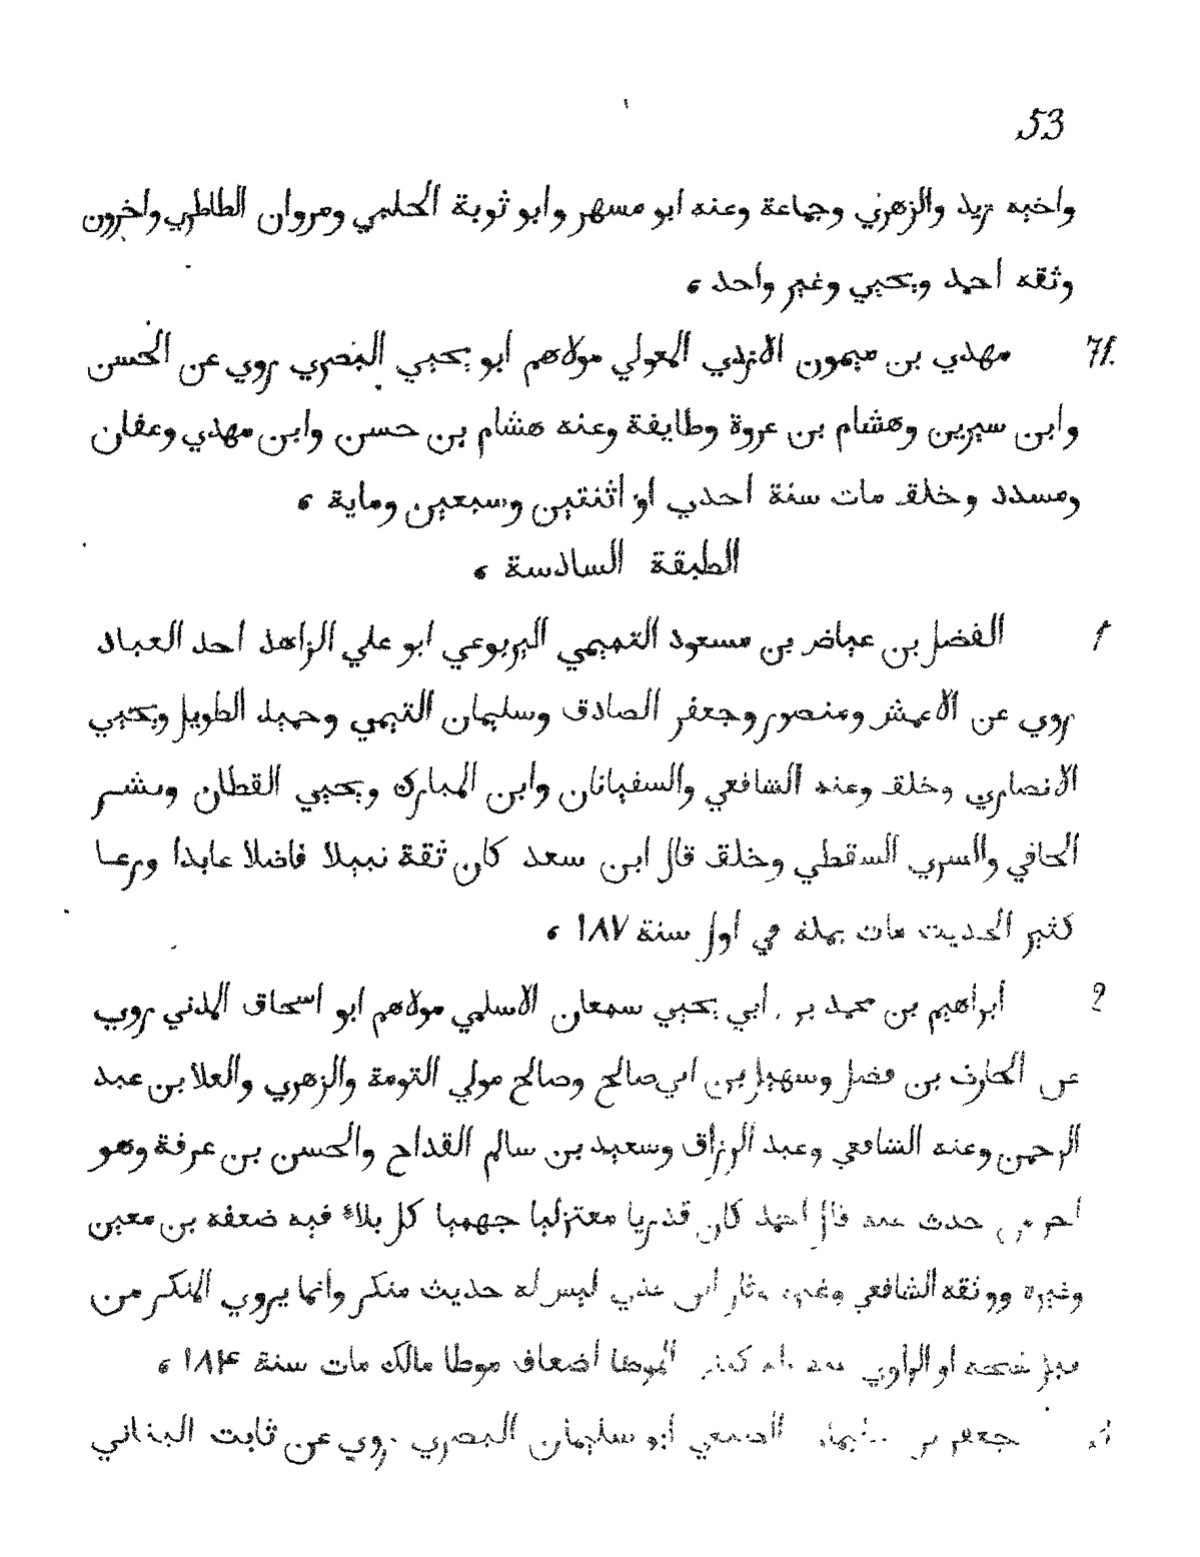 53
واخيه زيد والزهري وجماعة وعنه ابو مسهر وابو ثوبة الحلبي ومروان الطاطري واخرون
وثقه احمد ويحيي وغير واحد ،
71. مهدي بن ميمون الازدي المعولي مولاهم ابو يحيي البصري روي عن الحسن
وابن سيرين وهشام بن عروة وطايفة وعنه هشام بن حسن وابن مهدي وعفان
ومسدد وخلق مات سنة احدي او اثنتين وسبعين وماية ،
الطبقة السادسة ،
1 الفضل بن عياض بن مسعود التميمي اليربوعي ابو علي الزاهد احد العباد
روي عن الاعمش ومنصور وجعفر الصادق وسليمان التيمي وحميد الطويل ويحيي
الانصاري وخلق وعنه الشافعي والسفيانان وابن المبارك ويحيي القطان وبشر
الحافي والسري السقطي وخلق قال ابن سعد كان ثقة نبيلا فاضلا عابدا ورعا
كثير الحديث مات بمكة في اول سنة ١٨٧ ،
2 ابراهيم بن محمد بن ابي يحيي سمعان الاسلمي مولاهم ابو اسحاق المدني روي
عن الحارث بن فضل وسهيل بن ابي صالح وصالح مولي التومة والزهري والعلا بن عبد
الرحمن وعنه الشافعي وعبد الرزاق وسعيد بن سالم القداح والحسن بن عرفة وهو
اخر من حدث عنه قال احمد كان قدريا معتزليا جهميا كل بلاء فيه ضعفه بن معين
وغيره ووثقه الشافعي وغيره وقال ابن عدي ليس له حديث منكر وانما يروي المنكر من
قبل شيخه او الراوي عنه وله كتاب الموطا اضعاف موطا مالك مات سنة ١٨٤ ،
جعفر بن سليمان الضبعي ابو سليمان البصري روي عن ثابت البناني